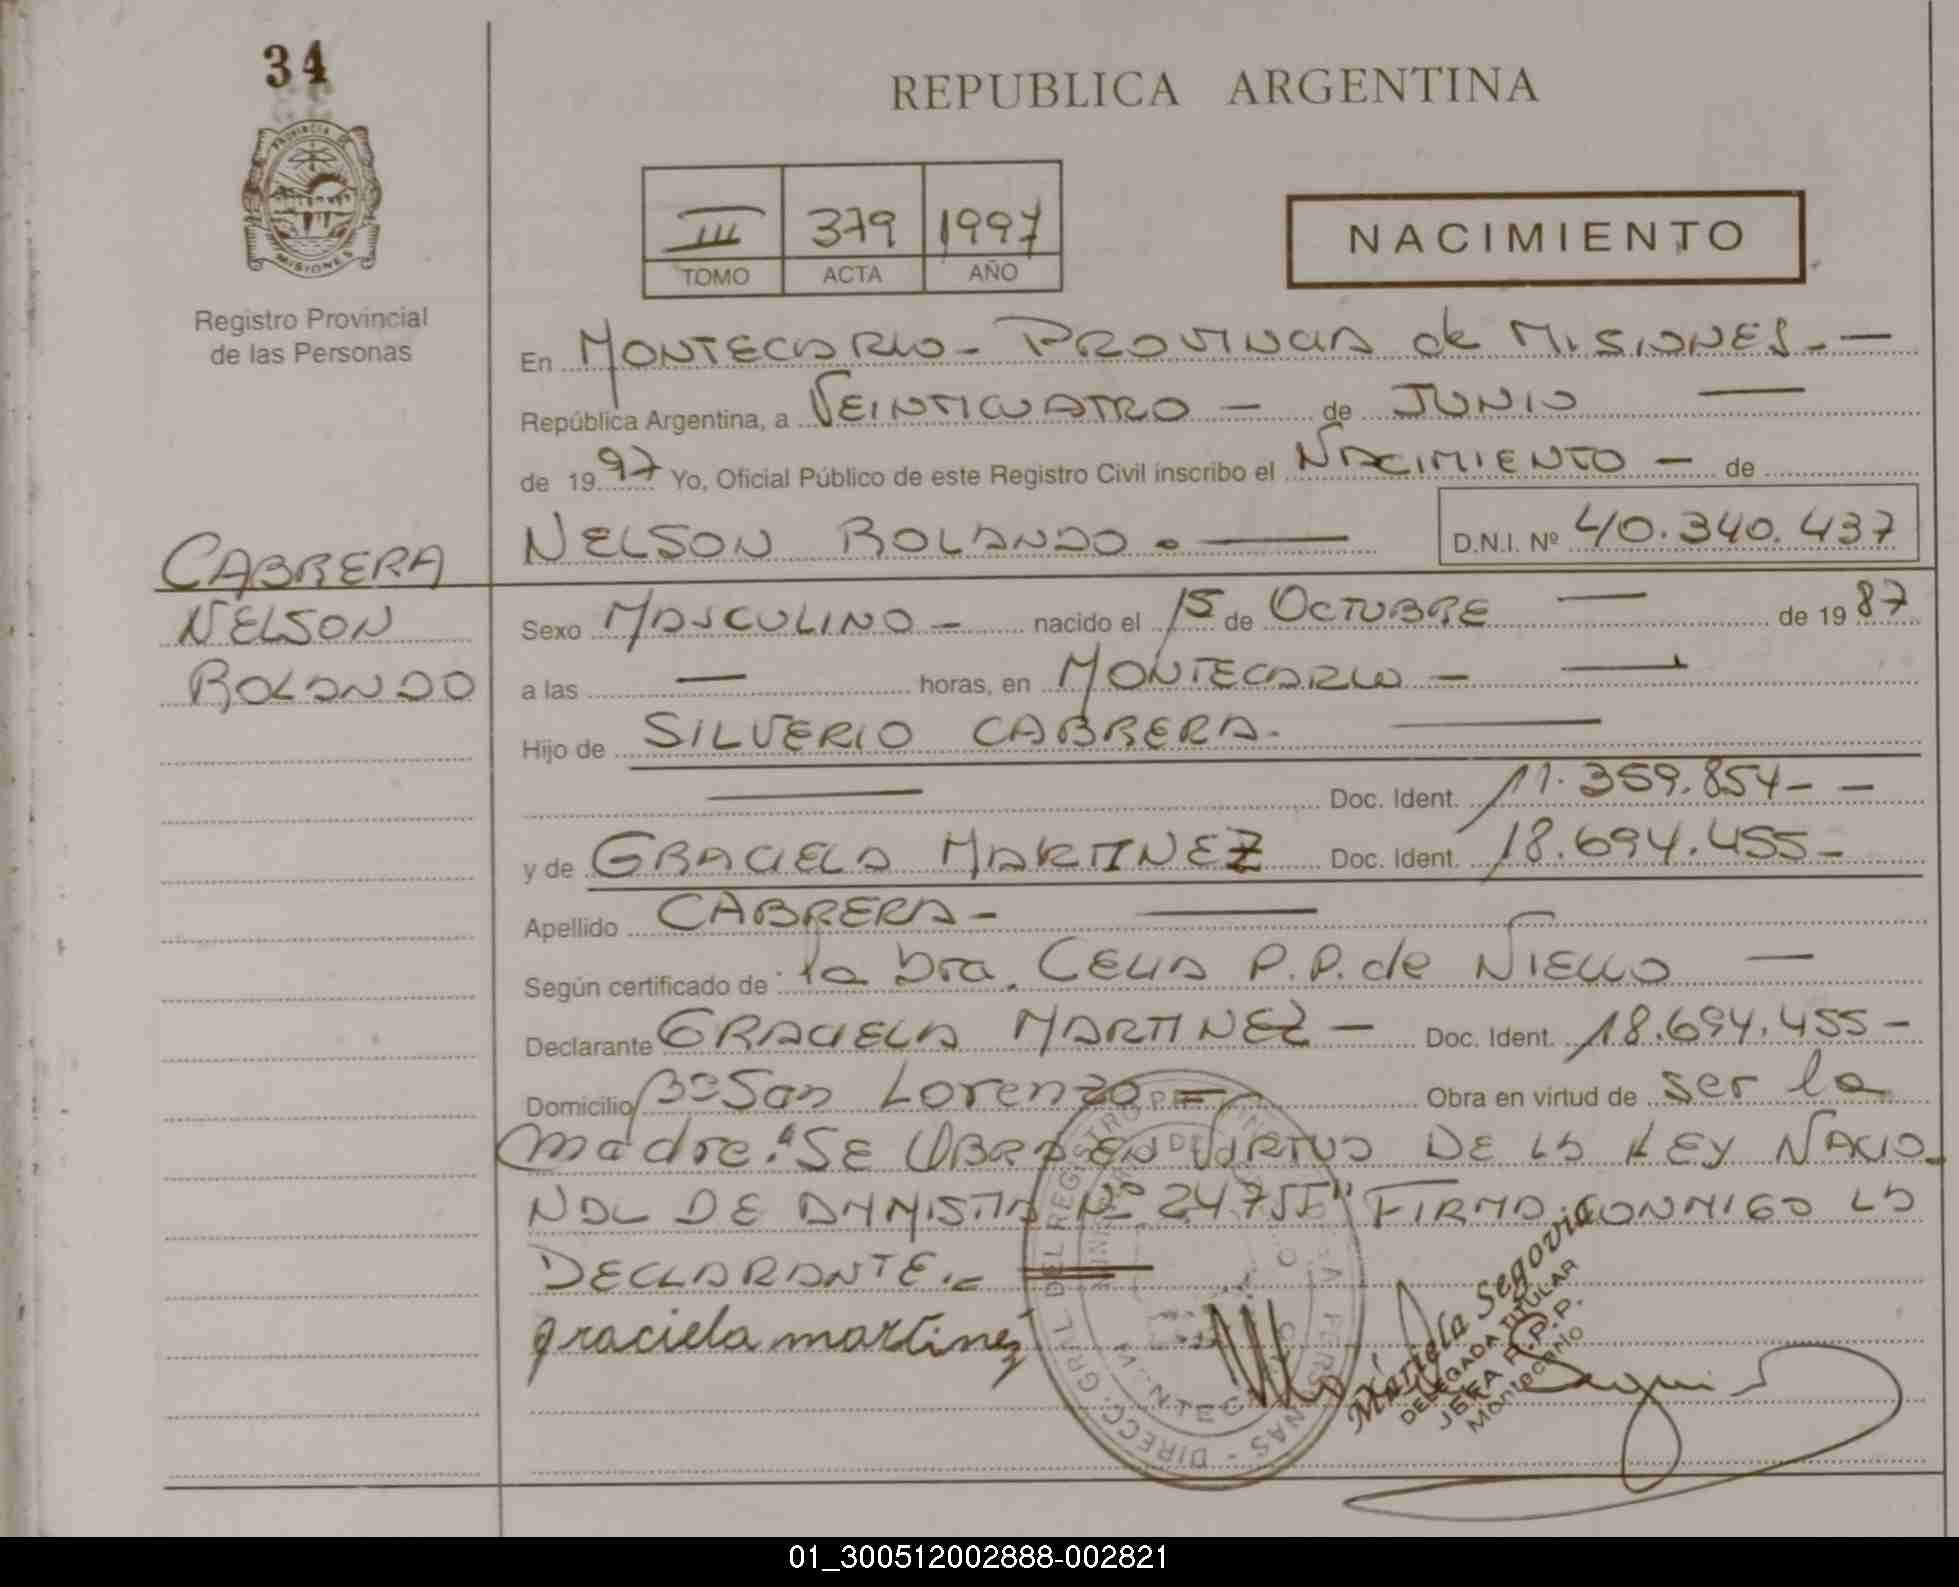 34
PROVINCIA DE
MISIONES
Registro Provincial
de las Personas
REPUBLICA ARGENTINA
III 379 1997
TOMO ACTA AÑO
NACIMIENTO
En MONTECARLO - PROVINCIA de MISIONES. -
República Argentina, a VEINTICUATRO - de JUNIO -
de 1997 Yo, Oficial Público de este Registro Civil inscribo el NACIMIENTO - de
NELSON ROLANDO. - D.N.I. Nº 40.340.437
CABRERA
NELSON
ROLANDO
Sexo MASCULINO - nacido el 15 de OCTUBRE - de 1987
a las - horas, en MONTECARLO - -
Hijo de SILVERIO CABRERA. -
- Doc. Ident. 11.359.854 - -
y de GRACIELA MARTINEZ Doc. Ident. 18.694.455 -
Apellido CABRERA - -
Según certificado de la Dra. CELIA P.P. de NIELLO -
Declarante GRACIELA MARTINEZ - Doc. Ident. 18.694.455 -
Domicilio Bº San Lorenzo = Obra en virtud de ser la
madre. "SE OBRA EN VIRTUD DE LA LEY NACIO-
NAL DE AMNISTIA Nº 24755" FIRMA CONMIGO LA
DECLARANTE. =
graciela martinez
Mariela Segovia
DELEGADA TITULAR
JEFA R.P.P.
Montecarlo
01_300512002888-002821